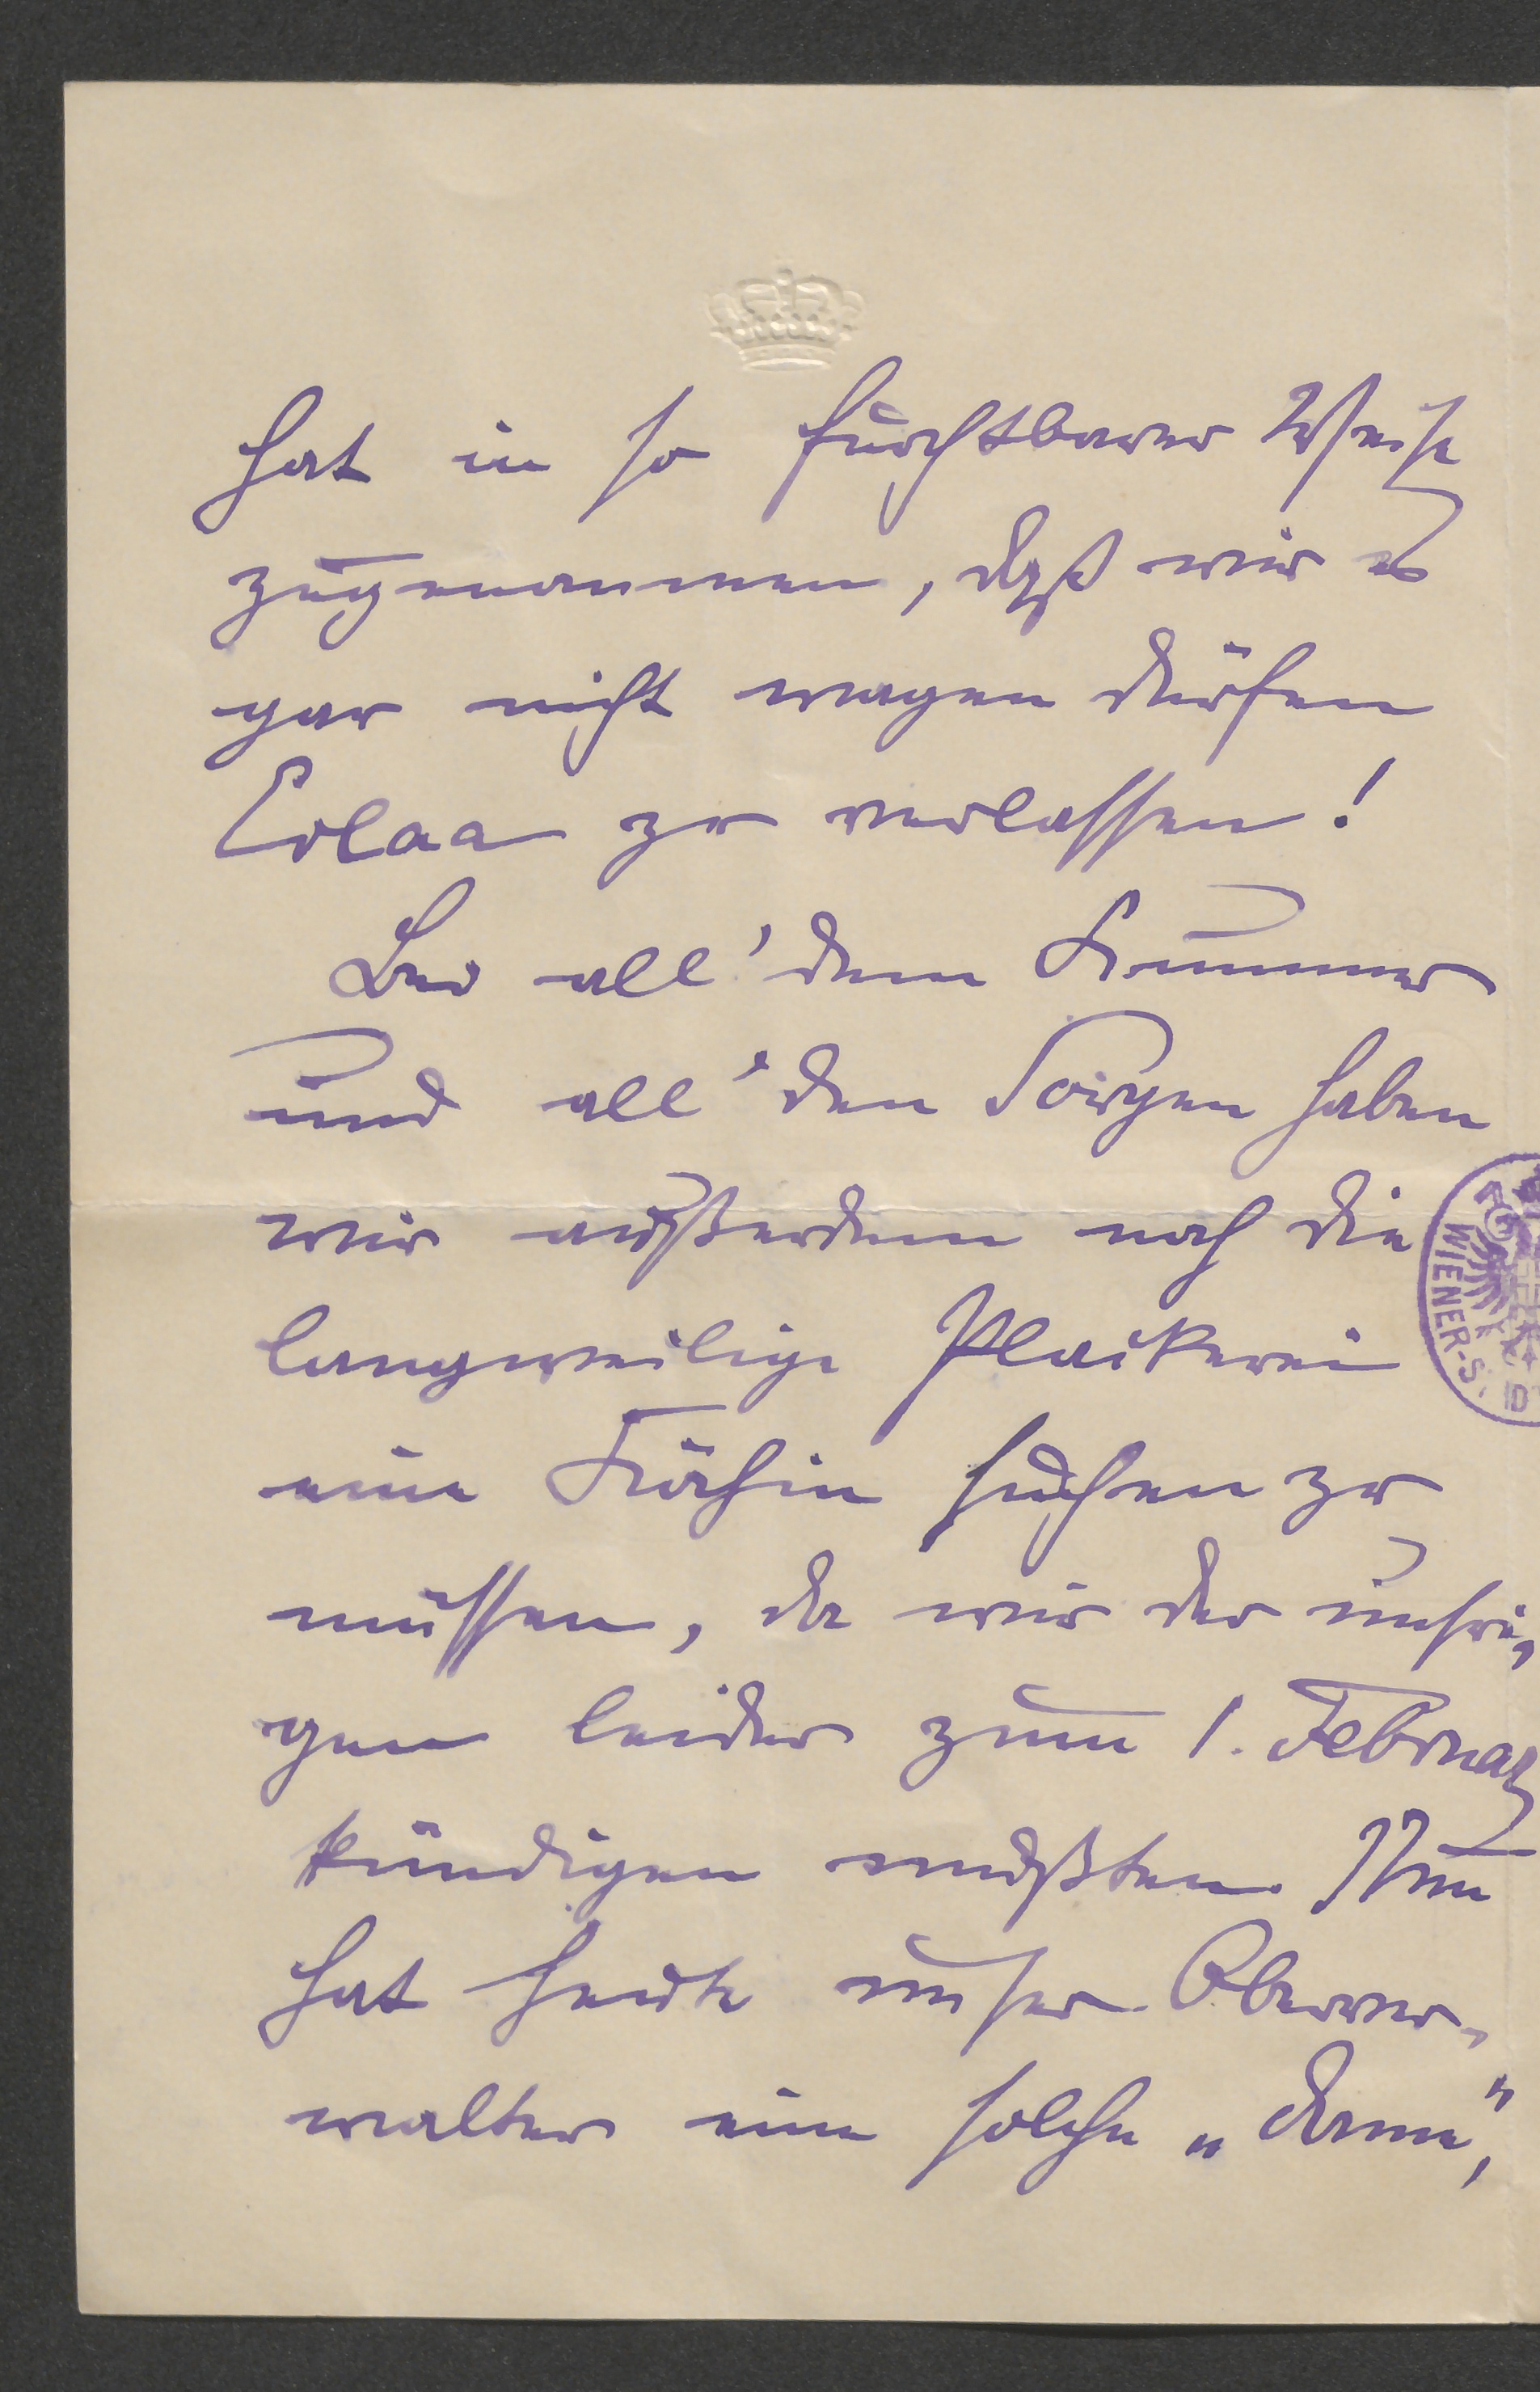 hat in so furchtbarer Weise
zugenommen, daß wir es
gar nicht wagen dürfen
Erlaa zu verlassen!
Bei all' dem Kummer
und all' den Sorgen haben
wir außerdem noch die
langweilige Plackerei
eine Köchin suchen zu
müssen, da wir der unsri„
gen leider zum 1. Februar
kündigen mußten. Nun
hat heute unser Oberver„
walter eine solche „Dame“,
WIENER-S